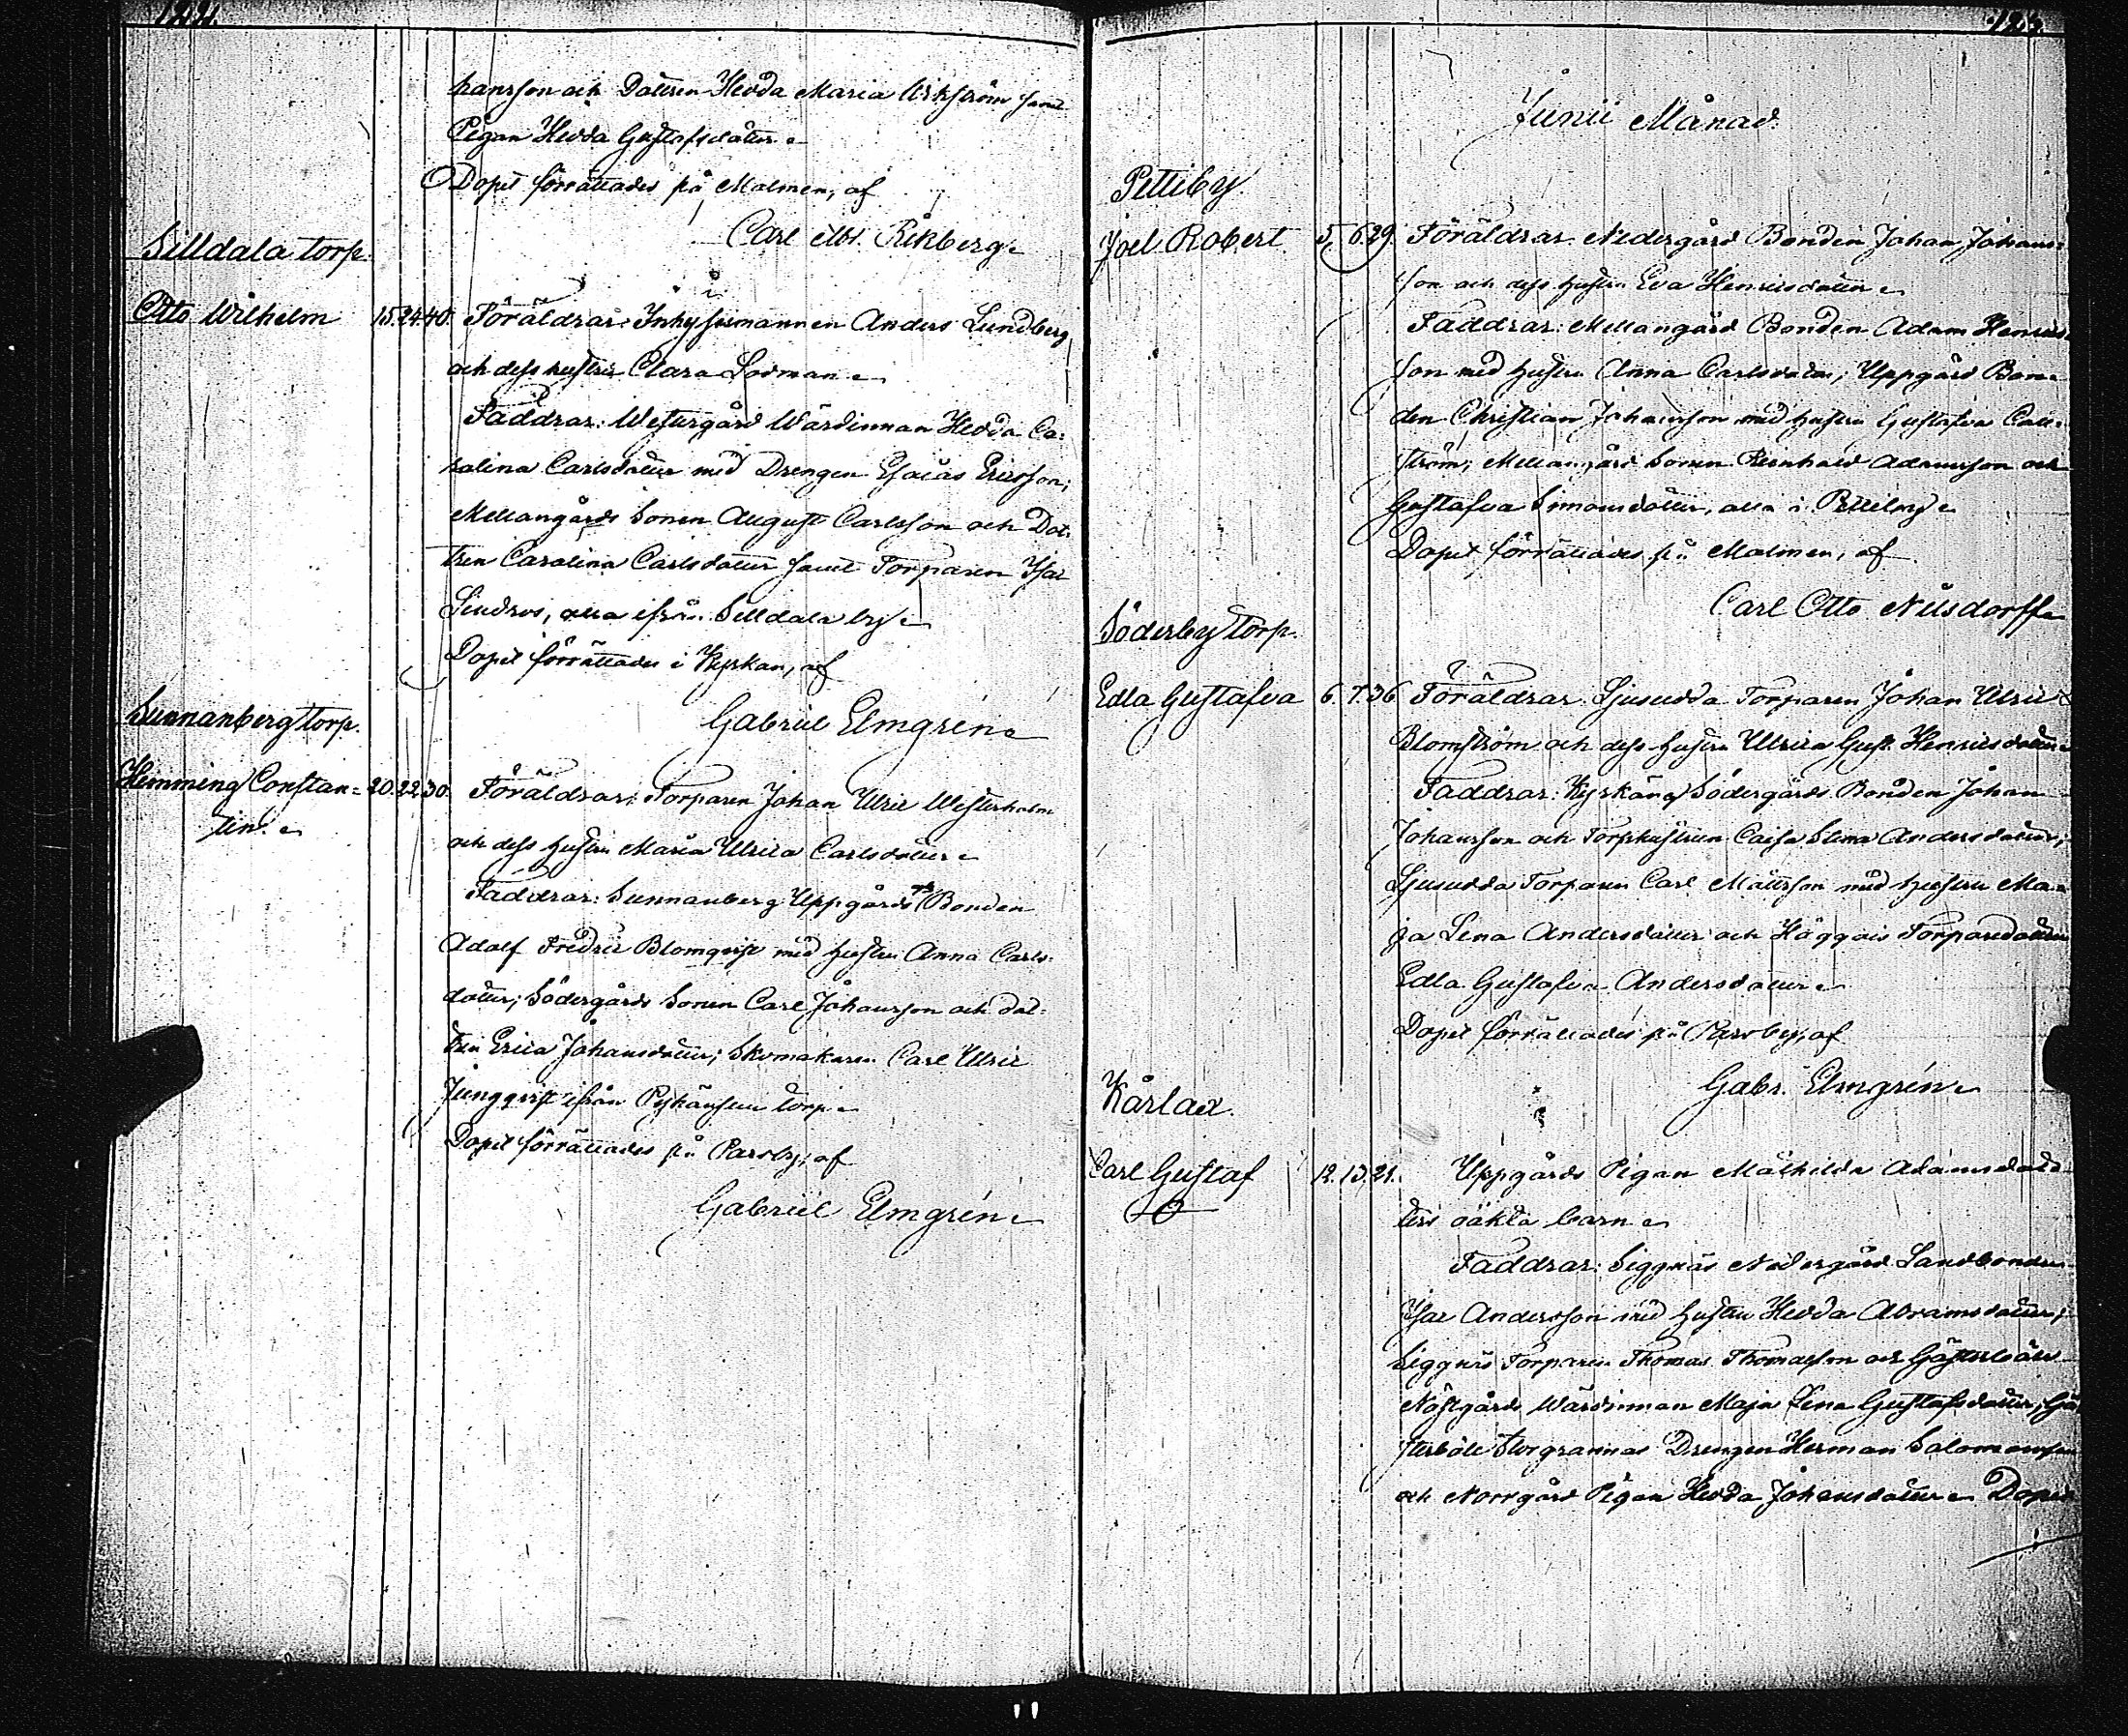 124.
hansson och Dottren Hedda Maria Wikström samt
Pigan Hedda Gustafsdotter
Dopet förrättades på Malmen, af
Carl Rikberg
Silldala torp.
Otto Wilhelm 15. 24. 40. Föräldrar: Inhysesmannen Anders Lundberg
och dess hustru Clara Lodman
Faddrar: Westergård Wärdinnan Hedda Ca=
talina Carlsdotter med Drengen Esaias Ericsson;
Mellangårds Sonen August Carlsson och Dot=
tren Carolina Carlsdotter samt Torparen Isac
Lindros, alla ifrån Silldala by
Dopet förrättades i Kyrkan, af
Gabriel Elmgrén
Sunnanberg torp.
Hemming Constan= 20. 22. 30. Föräldrar: Torparen Johan Ulric Westerholm
tin
och dess hustru Maria Ulrica Carlsdotter
Faddrar: Sunnanberg Uppgårds Bonden
Adolf Fredric Blomqvist med hustru Anna Carls=
dotter; Södergårds Sonen Carl Johansson och dot=
tren Erica Johansdotter; Skomakaren Carl Ulric
Jungqvist ifrån torp
Dopet förrättades på Parsby, af
Gabriel Elmgrén
125.
Junii Månad.
Pettiby
Joel Robert 5. 6. 29. Föräldrar: Nedergård Bonden Johan Johans=
son och dess hustru Eva Henricsdotter
Faddrar: Mellangård Bonden Adam Henrics=
son med hustru Anna Carlsdotter; Uppgård Bon=
den Christian Johansson med hustru Gustafva
ström; Mellangård Sonen Reinhold Adamsson och
Gustafva Simonsdotter, alla i Pettiby
Dopet förrättades på Malmen, af
Carl Otto Nilsdorff
Söderby torp.
Edla Gustafva 6. 7. 36. Föräldrar: Ljusudda Torparen Johan Ulric
Blomström och dess hustru Ulrica Gust. Henricsdotter
Faddrar: Södergårds Bonden Johan
Johansson och Torphustrun Caisa Stina Andersdotter;
Ljusudda Torparen Carl Mattsson med hustru Ma=
ja Lena Andersdotter och Häggais Torparedottren
Edla Gustafva Andersdotter
Dopet förrättades på Parsby, af
Gabr. Elmgrén
Kårlax.
Carl Gustaf 12. 13. 21. Uppgårds Pigan Mathilda Adamsdot=
ters oäkta barn
Faddrar: Siggnäs Nedergård Landbonden
Isac Andersson med hustru Hedda Abramsdotter;
Siggnäs Torparen Thomas Thomasson och Gästerböle
Nästgårds Wärdinnan Maja Lena Gustafsdotter; Gä=
sterböle Storgrannas Drengen Herman Salomonsson
och Norrgård Pigan Hedda Johansdotter Dopet